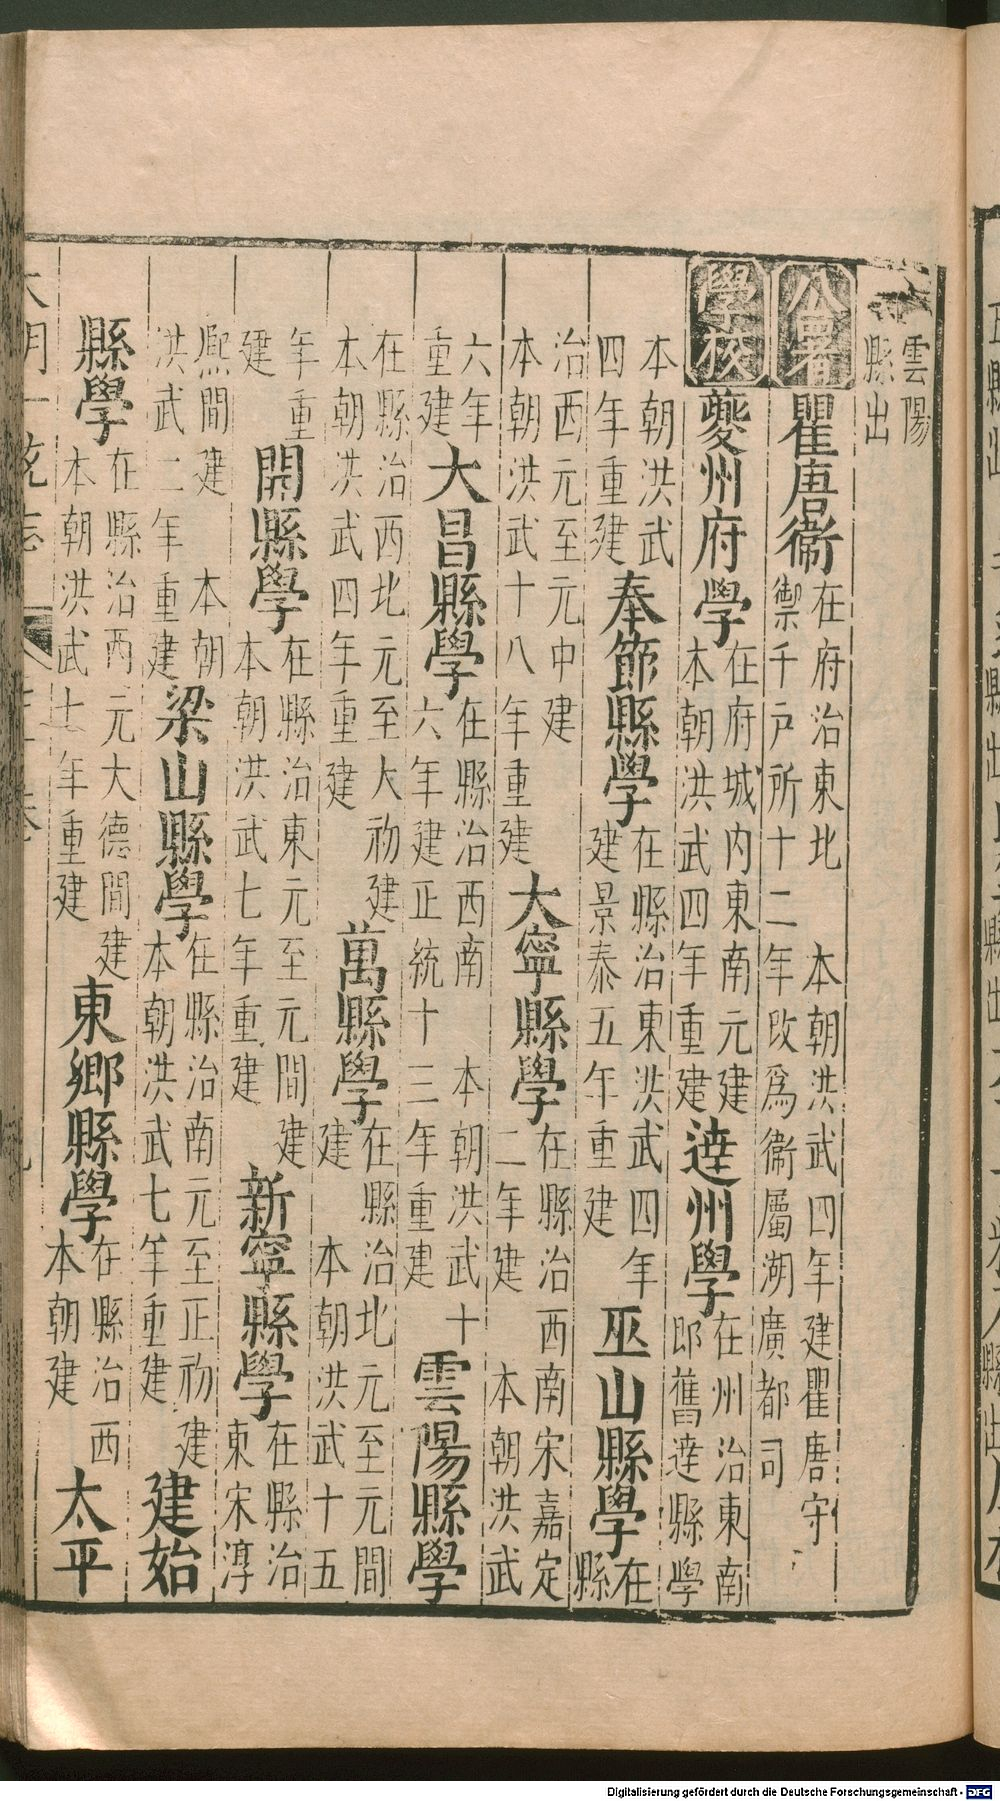 雲陽縣出
公署 瞿唐衞 在府治東北 本朝洪武四年建瞿唐守禦千戶所十二年改爲衞屬湖廣都司
學校 夔州府學 在府城內東南元建本朝洪武四年重建 達州學 在州治東南即舊達縣學
本朝洪武四年重建 奉節縣學 在縣治東洪武四年建景泰五年重建 巫山縣學 在縣
治西元至元中建本朝洪武十八年重建 大寧縣學 在縣治西南宋嘉定二年建 本朝洪武
六年重建 大昌縣學 在縣治西南 本朝洪武十六年建正統十三年重建 雲陽縣學
在縣治西北元至大初建本朝洪武四年重建 萬縣學 在縣治北元至元間建 本朝洪武十五
年重建 開縣學 在縣治東元至元間建本朝洪武七年重建 新寧縣學 在縣治東宋淳
熙間建 本朝洪武二年重建 梁山縣學 在縣治南元至正初建本朝洪武七年重建 建始
縣學 在縣治西元大德間建本朝洪武年重建 東鄉縣學 在縣治西本朝建 太平
大明一統志
Digitalisierung gefördert durch die Deutsche Forschungsgemeinschaft - DFG